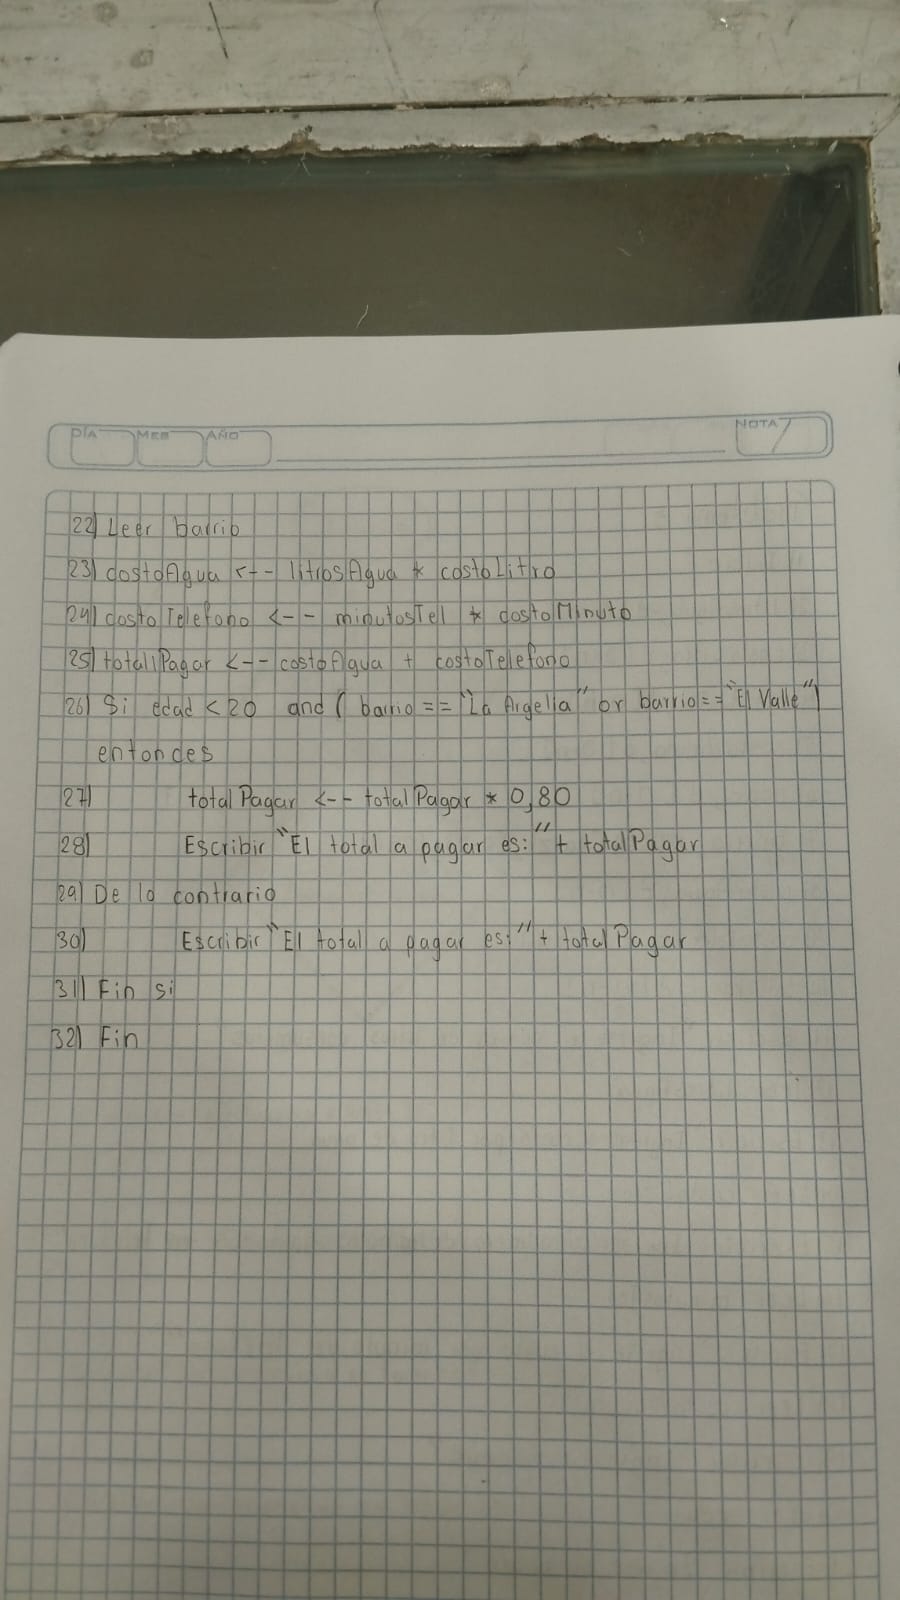 DÍA MES AÑO NOTA
22) Leer barrio
23) costoAgua <-- litrosAgua * costoLitro
24) costoTelefono <-- minutosTel * costoMinuto
25) totalPagar <-- costoAgua + costoTelefono
26) Si edad < 20 and ( barrio == "La Argelia" or barrio == "El Valle")
entondes
27) totalPagar <-- totalPagar * 0,80
28) Escribir "El total a pagar es:" + totalPagar
29) De lo contrario
30) Escribir "El total a pagar es:" + totalPagar
31) Fin si
32) Fin